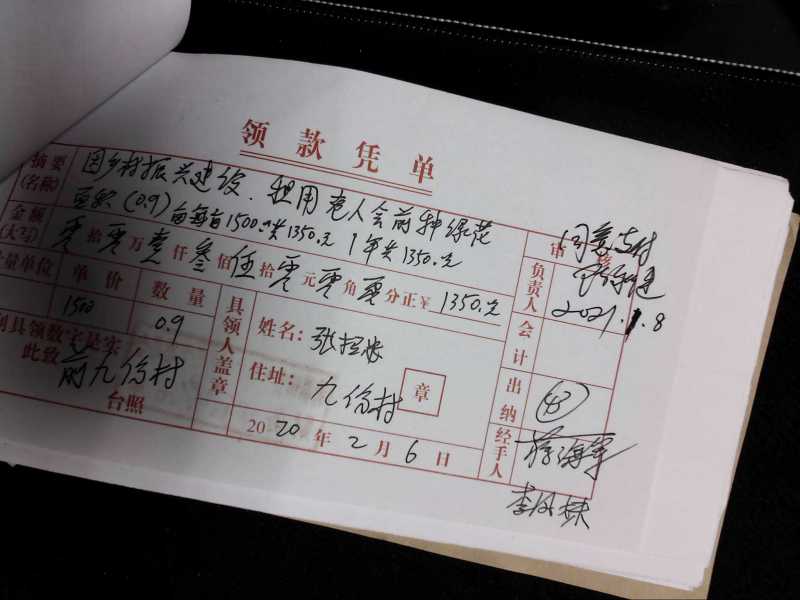 领款凭单
摘要 因乡村振兴建设.租用老人会前种绿花
(名称) 面积(0.9)亩每亩1500.共1350.元 1年共1350.元
金额 零拾零万壹仟叁佰伍拾零元零角零分正¥1350.元
(大写)
数量单位 单价 数量
1500 0.9
具领数字是实
此致 前九份村
台照
具领人盖章
姓名:
住址: 九份村
章
2020年2月6日
审核 同意支付
负责人
2021.1.8
会计
出纳 43
经手人